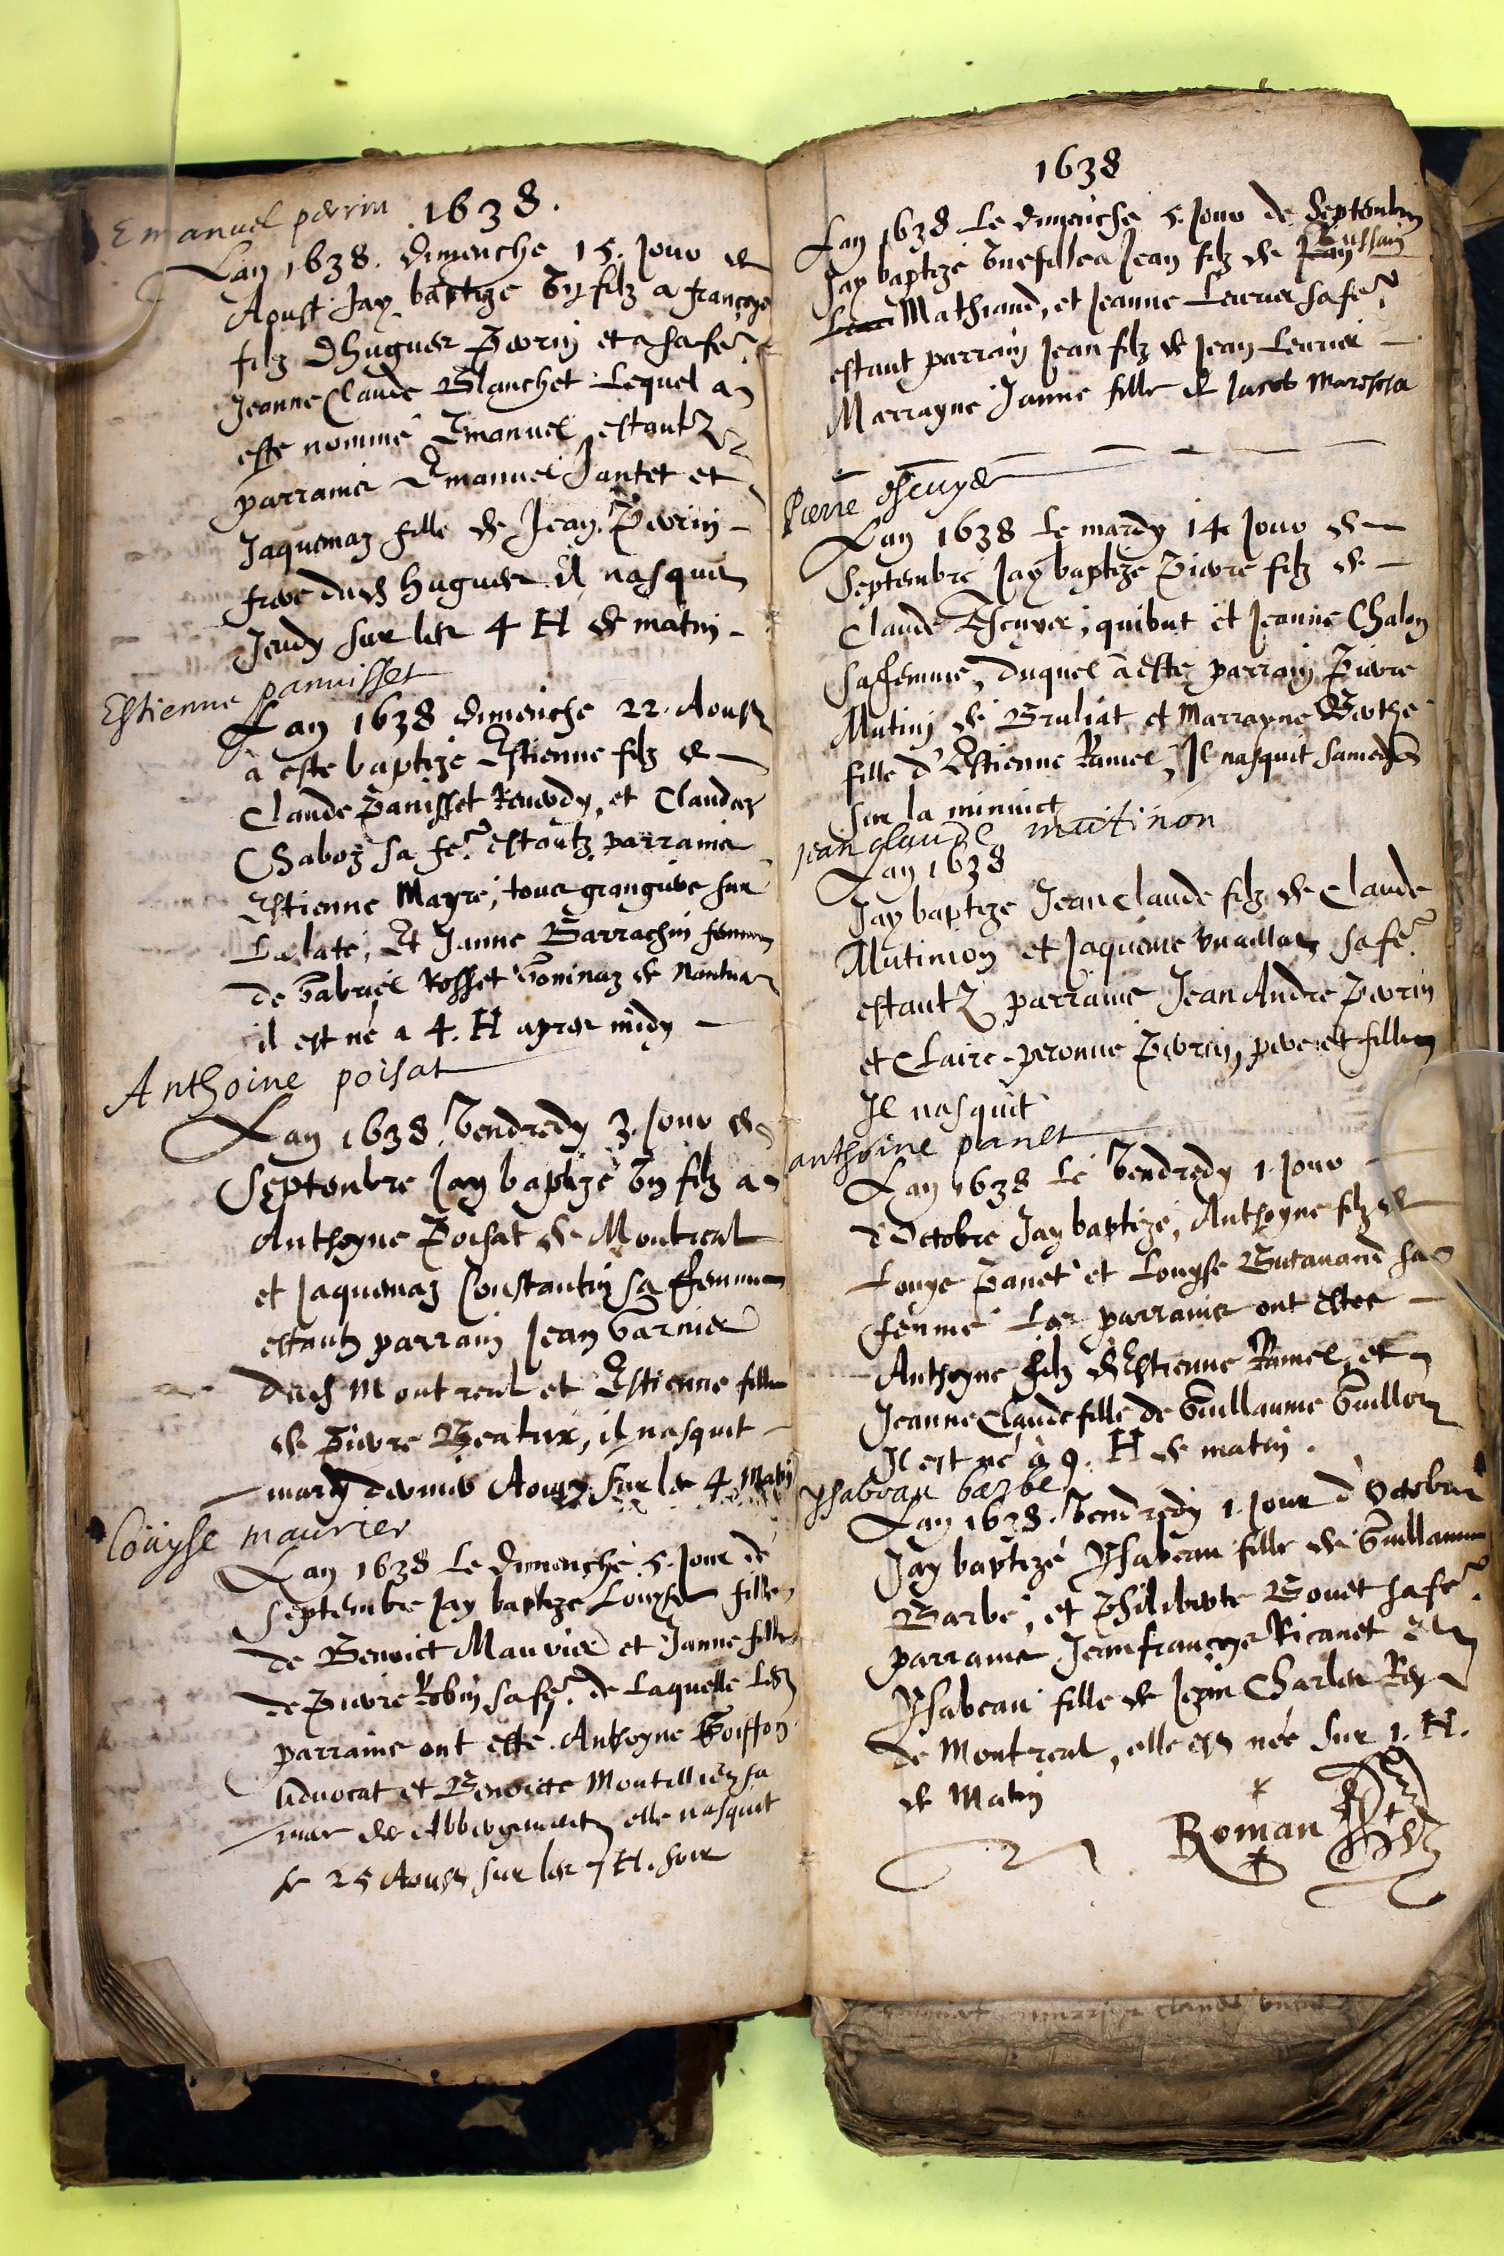 Emanuel perrin 1638.
Lan 1638. dimenche 15. Jour de
Aoust Jay baptizé Un filz a françoys
filz dhugues Perrin et a sa fe.
Jeanne Claude Blanchet Lequel a
esté nommé Emanuel estantz
parrains Emanuel Jantet et
Jaquemaz fille de Jean Perrin
frere dud hugues il nasquit
Jeudy sur les 4 H de matin
Estienne panuisset
Lan 1638 dimenche 22. Aoust
a esté baptizé Estienne filz de
Claude Panisset Reverdy, et Claudaz
Chaboz sa fe. estantz parrains
Estienne Mayre, tous grangiers sur
La late, Et Janne Barrachin femme
de Gabriel Rosset Goninaz de Nantua
il est né a 4. H apres midy
Anthoine poisat
Lan 1638. Vendredy 3. Jour de
Septembre Jay baptizé Un filz a
Anthoyne Poisat de Montreal
et Jaquemaz Constantin sa femme
estantz parrain Jean Garnier
dud Montreal et Estienne fille
de Pierre Beatrix, il nasquit
mardy dernier Aoust sur les 4 Matin
Loüyse maurier
Lan 1638 Le Dimenche 5. Jour de
Septembre Jay baptizé Louyse fille
de Benoict Maurier et Janne fille
de Pierre Robin sa fe. de Laquelle Les
parrains ont esté Anthoyne Goiffon
Advocat et Benoicte Montillier sa
mar des Abbergement elle nasquit
le 25 Aoust sur les 7 H. soir
1638
Lan 1638 Le dimenche 5. Jour de Septembre
Jay baptizé Une fille a Jean filz de Toussain
Mathiand, et Jeanne Levrier sa fe.
estant parrain Jean filz de Jean Levrier
Marrayne Janne fille de Jacob
Pierre Escuyer
Lan 1638 Le mardy 14 Jour de
Septembre Jay baptizé Pierre filz de
Claude Escuyer, quibut et Jeanne Chalon
sa femme, duquel a esté parrain Pierre
Mutin de Bruliat et Marrayne Berthe
fille d'Estienne Ramel, Il nasquit samedy
sur la minuict
Jean glaude mutinon
Lan 1638
Jay baptizé Jean Claude filz de Claude
Mutinon et Jaqueme Vuaillat sa fe.
estantz parrains Jean André Perrin
et Claire-peronne Perrin, pere et fille
Il nasquit
anthoine panet
Lan 1638 Le Vendredy 1. Jour
d'Octobre Jay baptizé, Anthoyne filz de
Louys Panet et Louyse Butavand sa
femme Les parrains ont estés
Anthoyne filz d'Estienne Ramel, et
Jeanne Claude fille de Guillaume Guillon
Il est né a 9. H de matin.
ysabeau barbe
Lan 1638. Vendredy 1. Jour d'Octobre
Jay baptizé Ysabeau fille de Guillaume
Barbe, et Philiberte Bouet sa fe.
parrains Jean françoys Ricanet Et
Ysabeau fille de Jean Charles Rey
de Montreal, elle est née sur 1. H.
de Matin
Roman